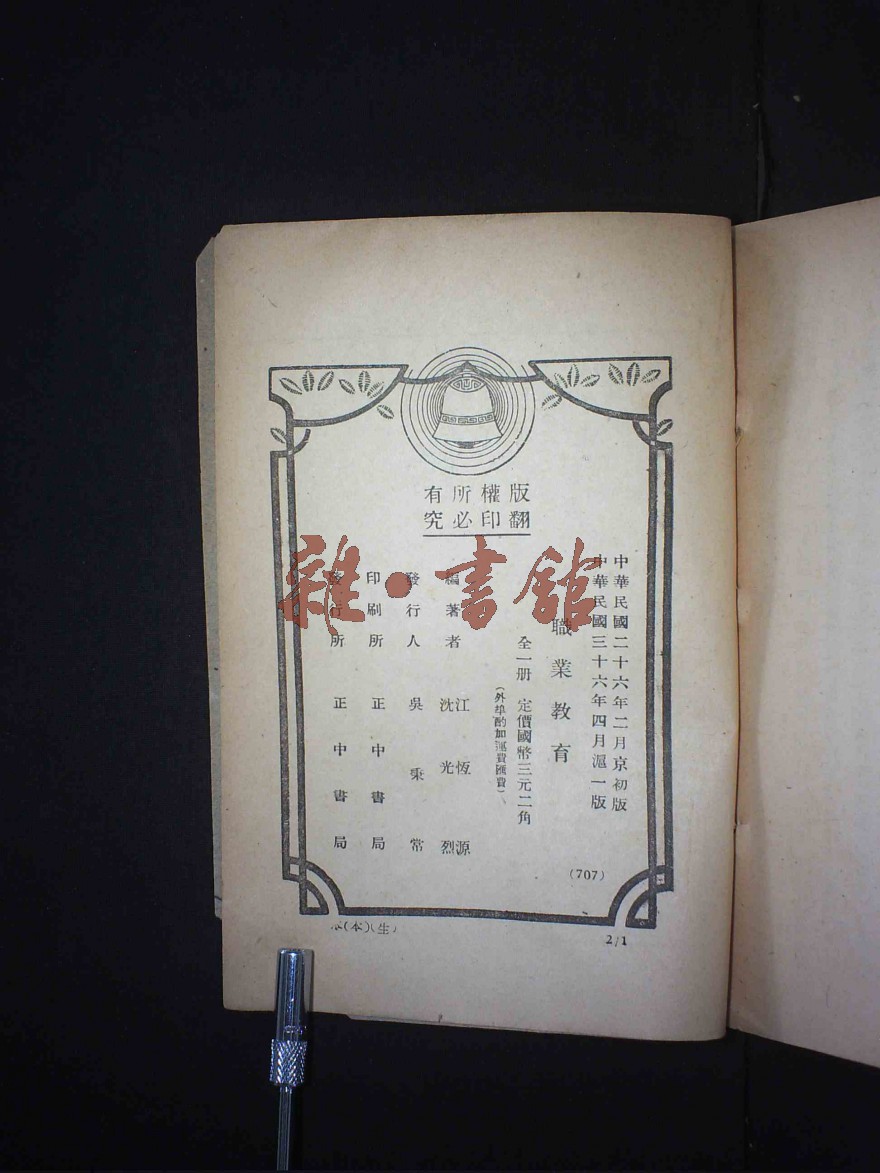 版權所有
翻印必究
中華民國二十六年二月京初版
中華民國三十六年四月滬一版
職業教育
全一册 定價國幣三元二角
(外埠酌加運費匯費)
編著者 江恆源 沈光烈
發行人 吳秉常
印刷所 正中書局
發行所 正中書局
(707)
(本)(生)
2/1
雜·書館